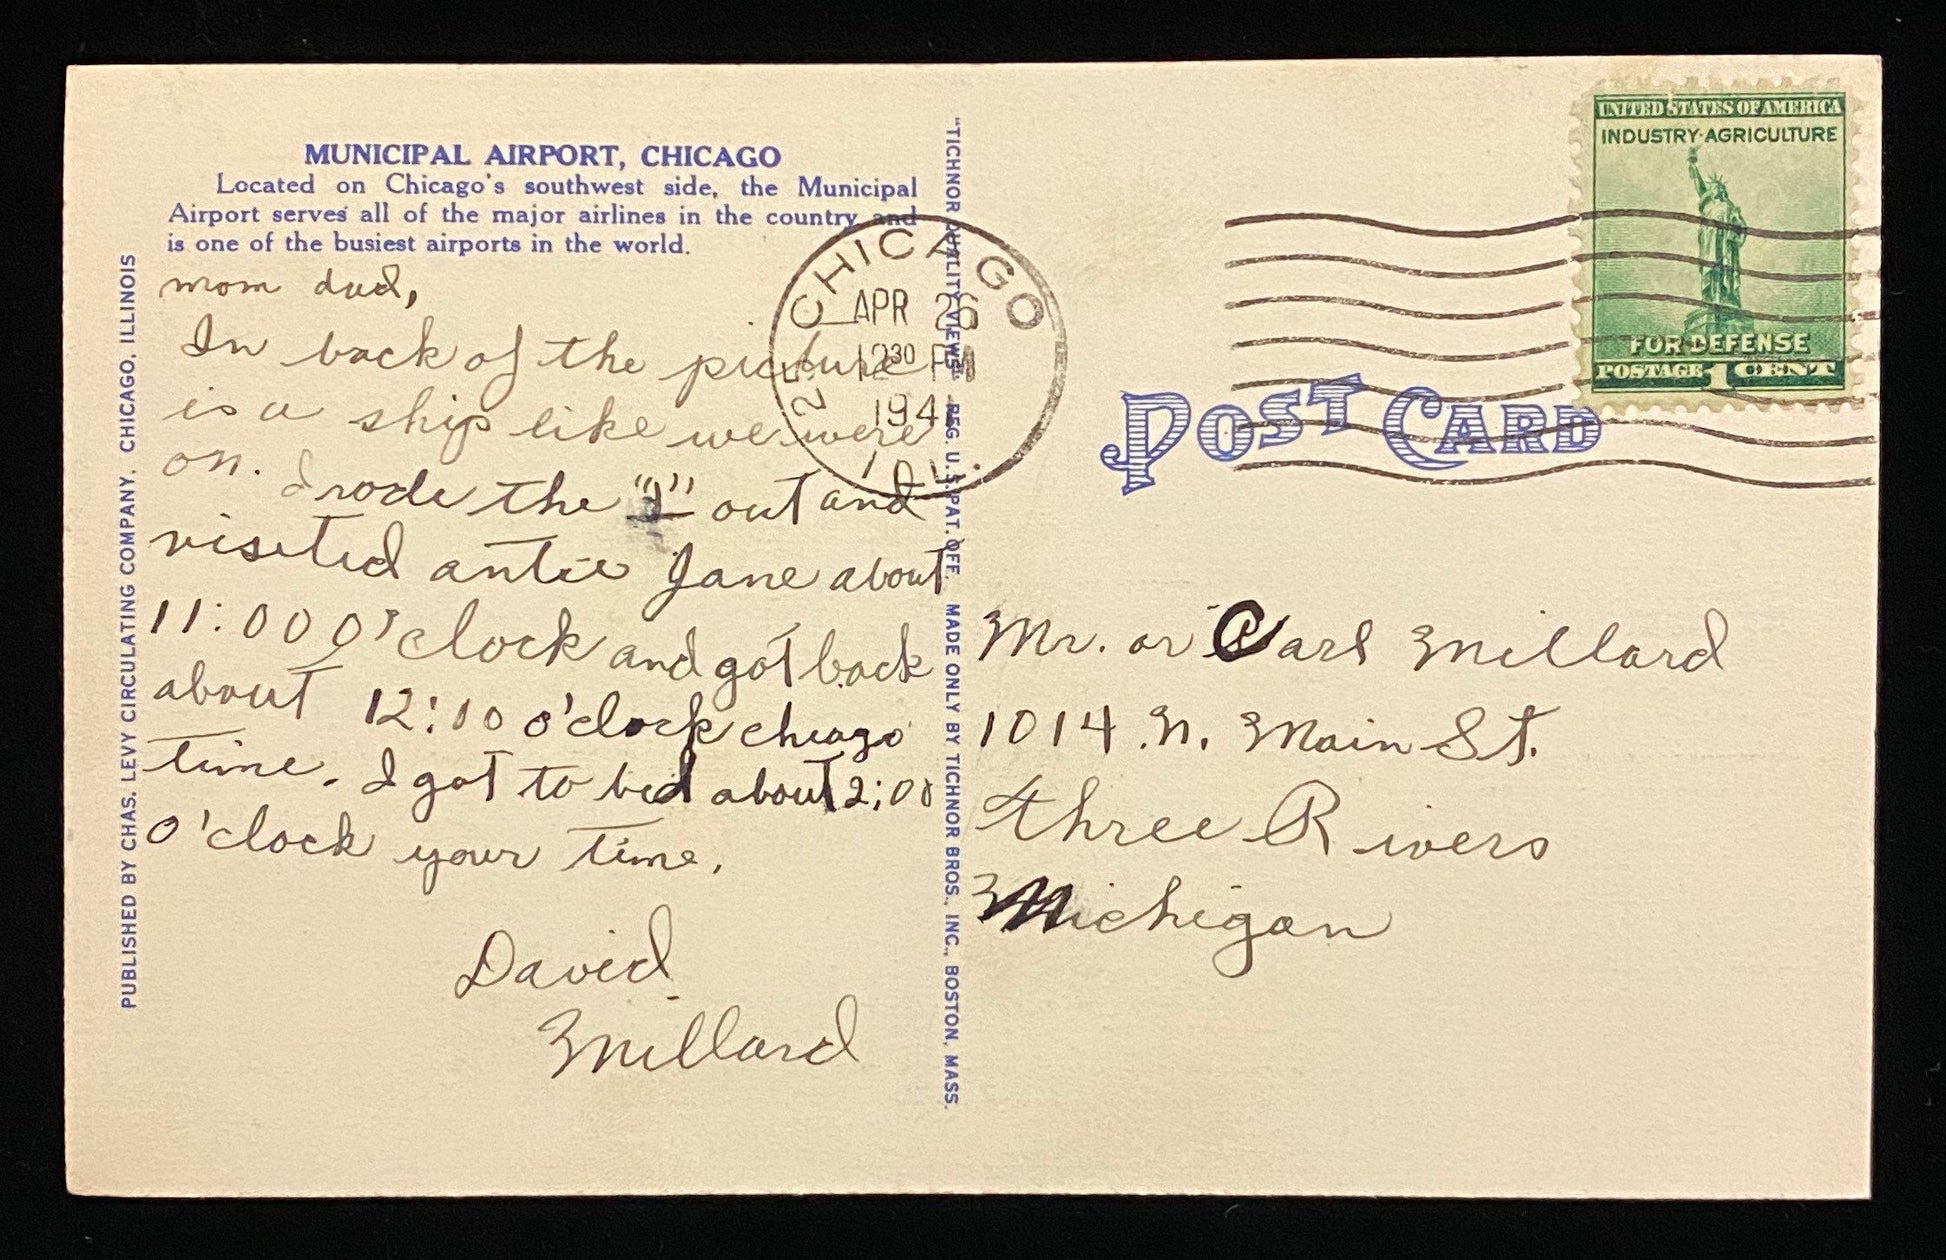 MUNICIPAL AIRPORT, CHICAGO
Located on Chicago's southwest side, the Municipal
Airport serves all of the major airlines in the country and
is one of the busiest airports in the world.
mom dad,
In back of the picture
is a ship like we were
on. I rode the "I" out and
visited antie Jane about
11:00 O'clock and got back
about 12:10 o'clock chicago
time. I got to bed about 2:00
O'clock your time.
David
Millard
PUBLISHED BY CHAS. LEVY CIRCULATING COMPANY, CHICAGO, ILLINOIS
"TICHNOR QUALITY VIEWS" REG. U.S. PAT. OFF. MADE ONLY BY TICHNOR BROS., INC., BOSTON, MASS.
CHICAGO
APR 26
12 30 PM
194
ILL.
POST CARD
UNITED STATES OF AMERICA
INDUSTRY·AGRICULTURE
FOR DEFENSE
POSTAGE 1 CENT
Mr. or Carl Millard
1014 N. Main St.
Three Rivers
Michigan